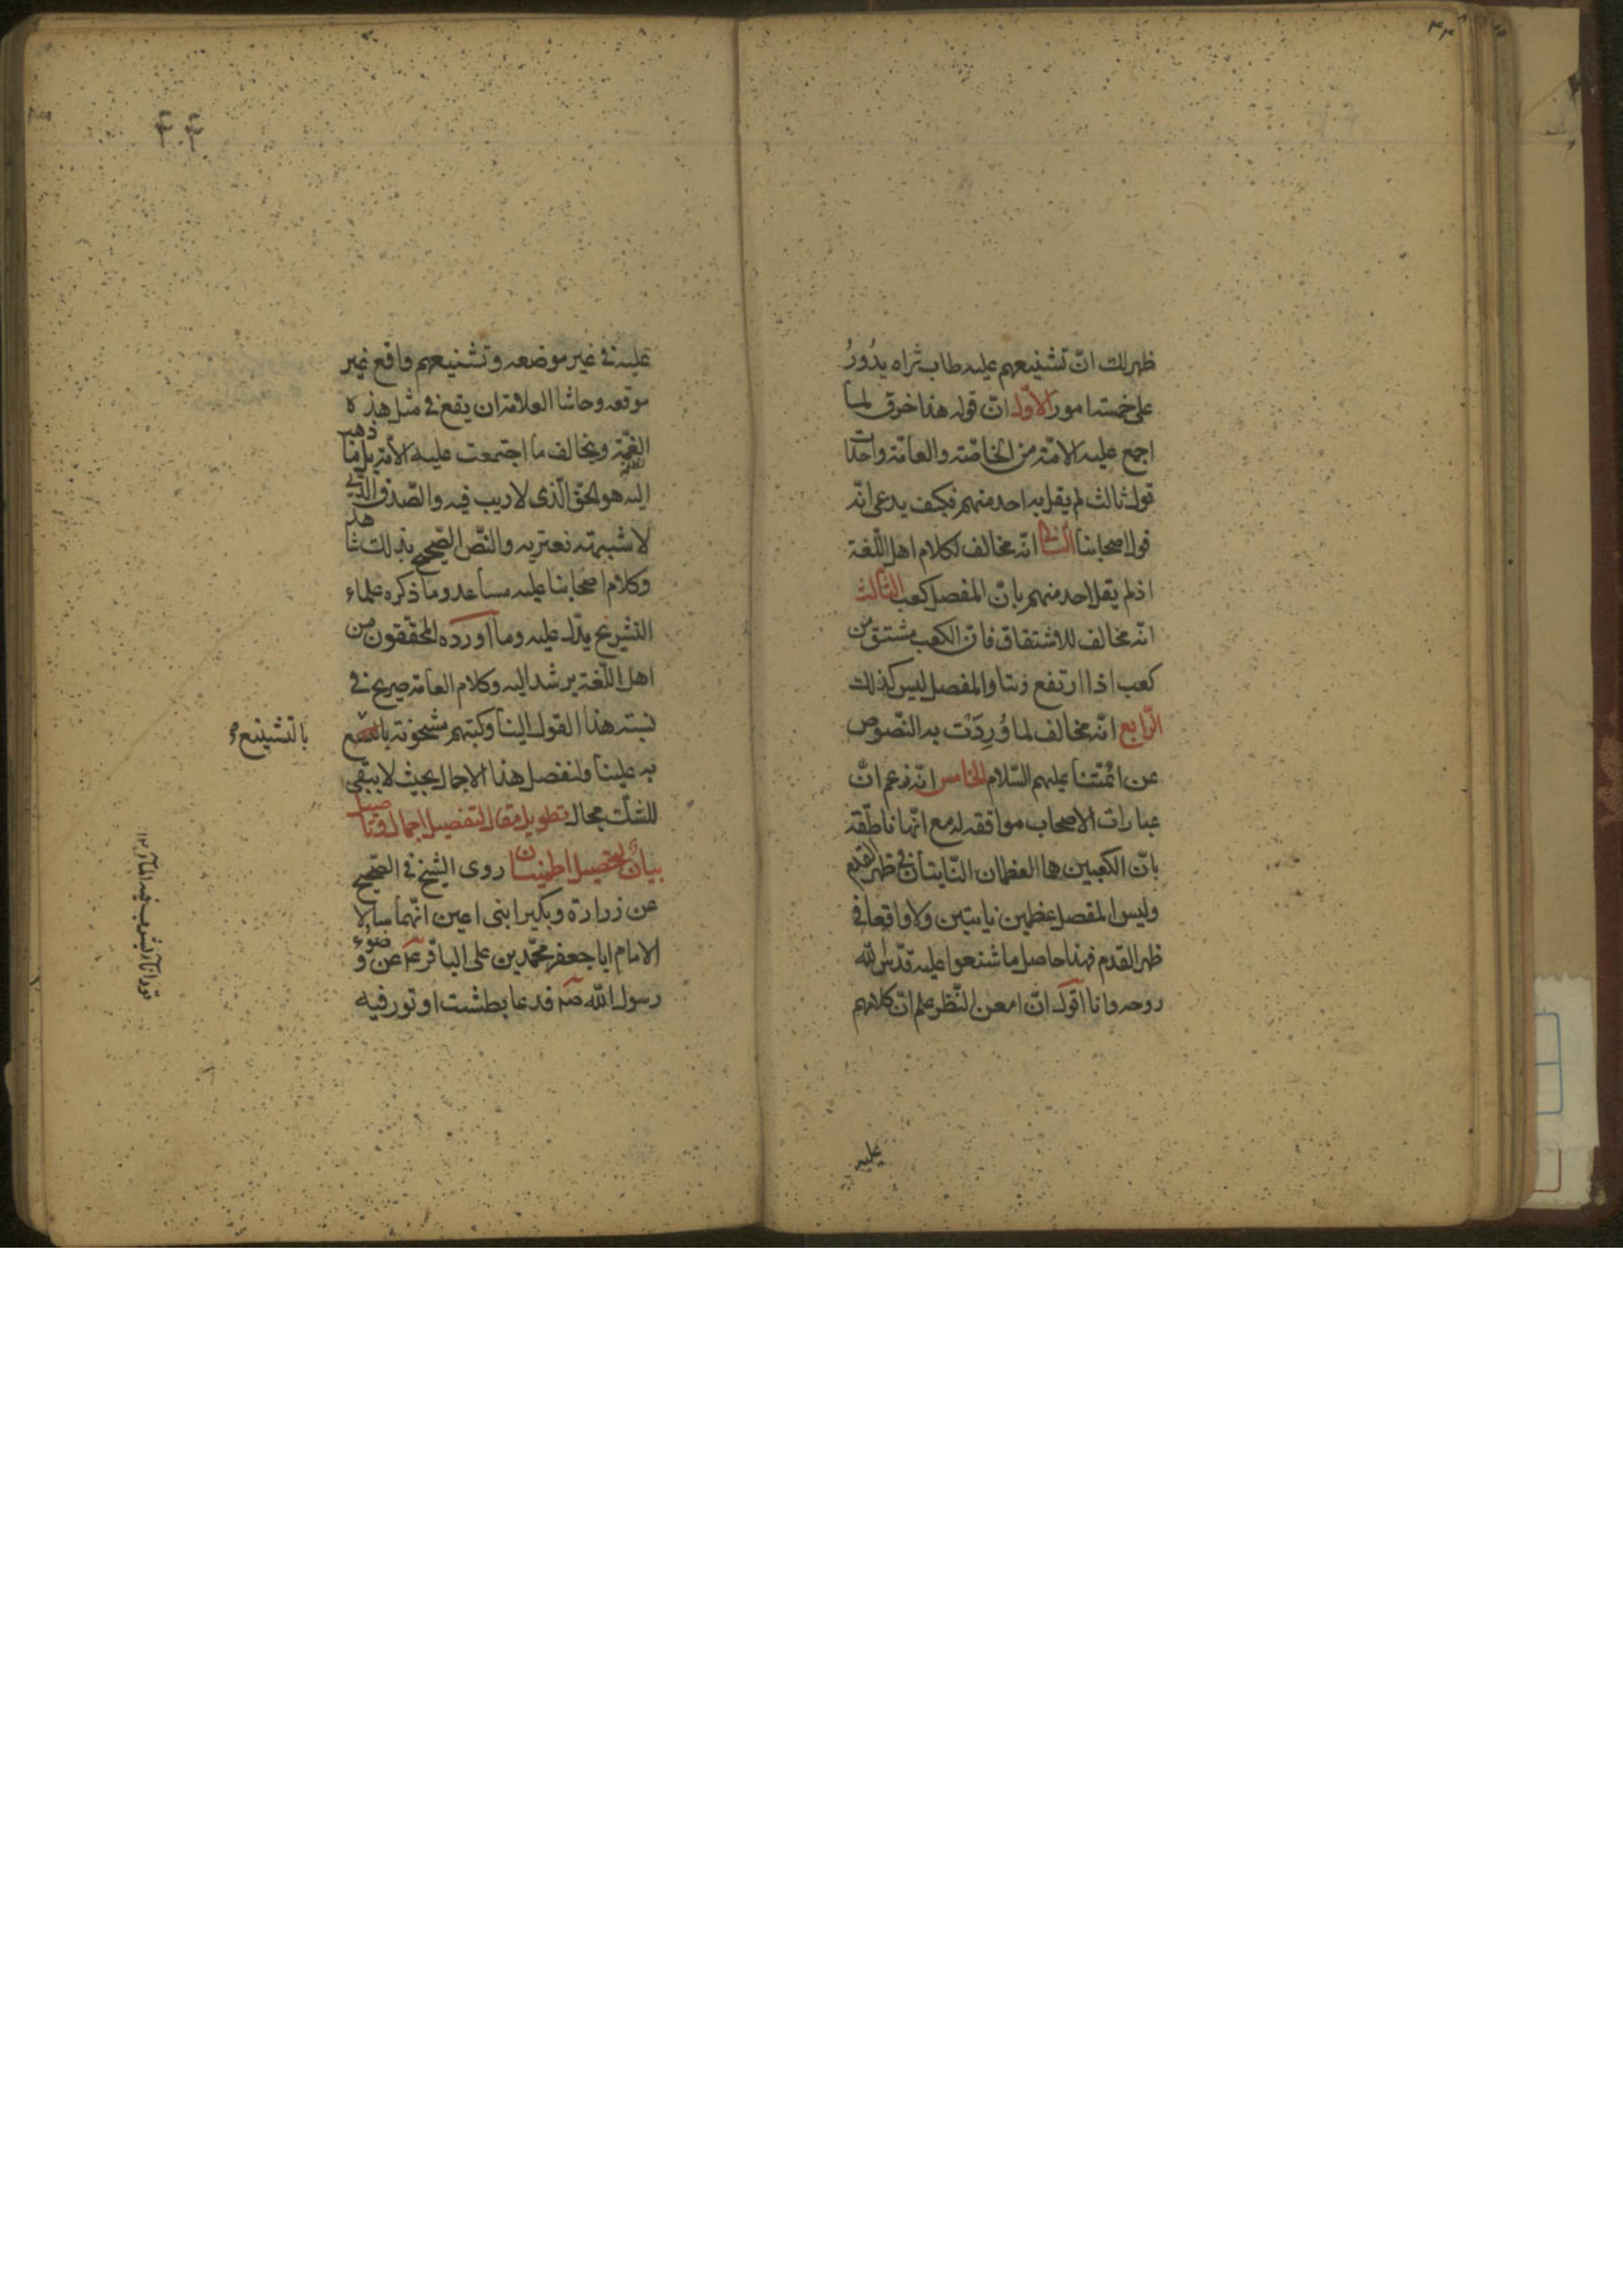 ظهر لك انّ تشنيعهم عليه طاب ثراه يدُورُ
على خمسة امور الاوّل انّ قوله هذا خرق لما
اجمع عليه الامّة من الخاصّة والعامّة واحداث
قول ثالث لم يقل به احد منهم فكيف يدعى انّه
قول اصحابنا الثانى انّه مخالف لكلام اهل اللّغة
اذ لم يقل احد منهم بانّ المفصل كعب الثالث
انّه مخالف للاشتقاق فانّ الكعب مشتق من
كعب اذا ارتفع ونتا والمفصل ليس كذلك
الرّابع انّه مخالف لما وُرِدَتْ به النّصوص
عن ائمّتنا عليهم السّلام الخامس انّه زعم انّ
عبارات الاصحاب موافقه له مع انّها ناطقة
بانّ الكعبين هما العظمان النّابتان فى ظهر القدم
وليس المفصل عظمين نابتين ولا واقعا فى
ظهر القدم فهذا حاصل ما شنعوا عليه قدّس اللّه
روحه وانا اقول انّ امعن النّظر علم انّ كلامهم
عليه
۴۴
عليه فى غير موضعه وتشنيعهم واقع غير
موقعه وحاشا العلامة ان يقع فى مثل هذه
الغمّة ويخالف ما اجتمعت عليه الامّة بل ما ذهب
اليه هو الحقّ الّذى لا ريب فيه والصّدق الّذى
لا شبهة تعتريه والنّص الصّحيح بذلك شاهد
وكلام اصحابنا عليه مساعد وما ذكره علماء
التشريح يدّل عليه وما اورده المحققون من
اهل اللّغة يرشد اليه وكلام العامّة صريح فى
نسبة هذا القول الينا وكتبهم مشحونة
بالتّشنيع
به علينا ولنفصل هذا الاجمال بحيث لا يبقى
للشّك مجال تطويل مقال لتفصيل اجمال وتاصيل
بيان لتحصيل اطمينان روى الشيخ فى الصّحيح
عن زرارة وبكير ابنى اعين انّهما سالا
الامام ابا جعفر محمّد بن على الباقر ع عن وضوء
رسول اللّه ص فدعا بطشت او تور فيه